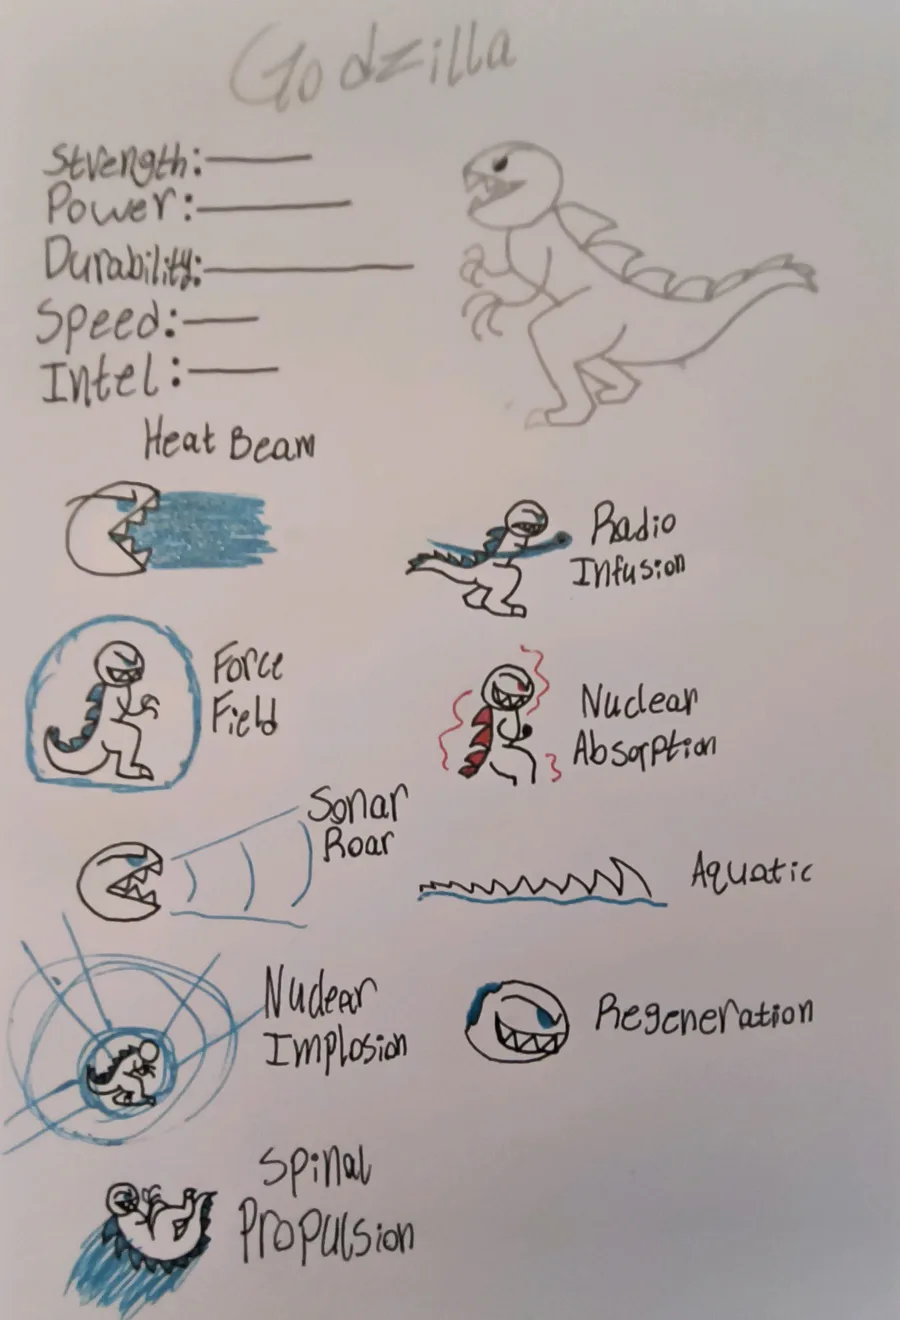 Godzilla
Strength:
Power:
Durability:
Speed:
Intel:
Heat Beam
Radio
Infusion
Force
Field
Nuclear
Absorption
Sonar
Roar
Aquatic
Nuclear
Implosion
Regeneration
Spinal
Propulsion